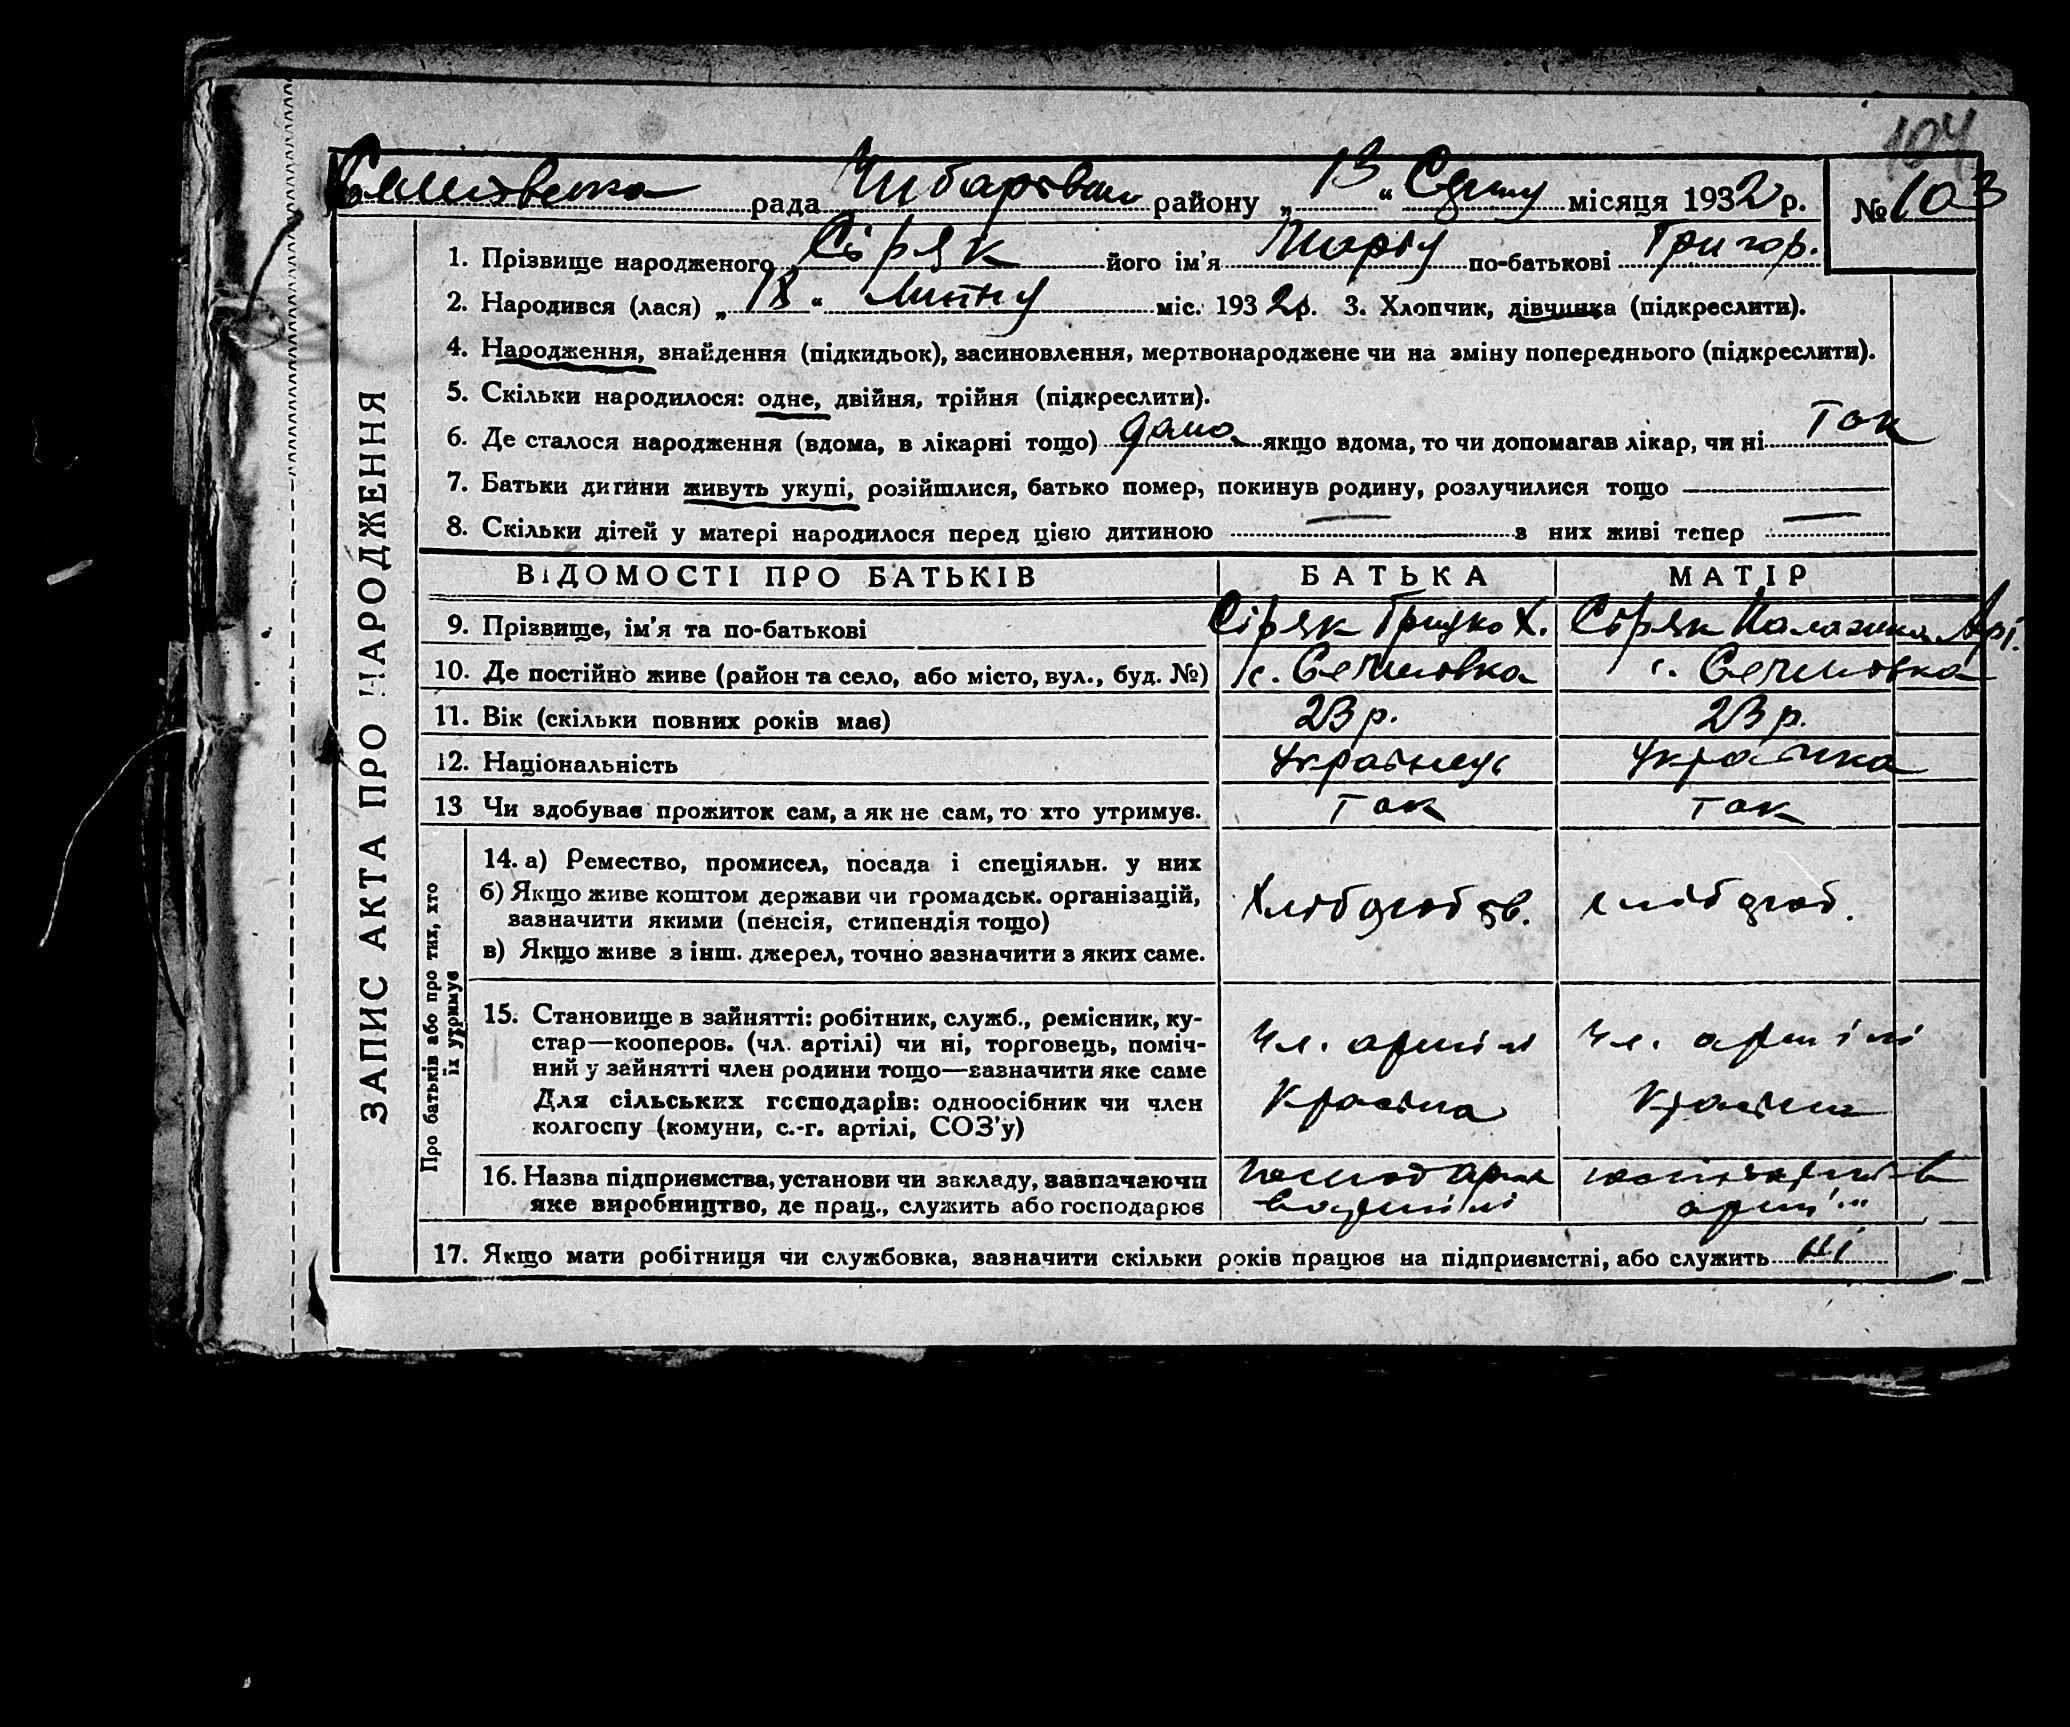 104
Семиовська рада Чубарівськ району „13“ Серпня місяця 1932 р. № 103
1. Прізвище народженого Сіряк його ім'я Марія по-батькові Григор.
2. Народився (лася) „18“ Липня міс. 1932 р. 3. Хлопчик, дівчинка (підкреслити).
4. Народження, знайдення (підкидьок), засиновлення, мертвонароджене чи на зміну попереднього (підкреслити).
5. Скільки народилося: одне, двійня, трійня (підкреслити).
6. Де сталося народження (вдома, в лікарні тощо) дома якщо вдома, то чи допомагав лікар, чи ні Так
7. Батьки дитини живуть укупі, розійшлися, батько помер, покинув родину, розлучилися тощо
8. Скільки дітей у матері народилося перед цією дитиною — з них живі тепер —
ЗАПИС АКТА ПРО НАРОДЖЕННЯ
ВІДОМОСТІ ПРО БАТЬКІВ БАТЬКА МАТІР
9. Прізвище, ім'я та по-батькові Сіряк Грицко Х. Сіряк Палажка
10. Де постійно живе (район та село, або місто, вул., буд. №) с. с.
11. Вік (скільки повних років має) 23 р. 23 р.
12. Національність Українець Українка
13 Чи здобуває прожиток сам, а як не сам, то хто утримує. Так Так
Про батьків або про тих, хто
їх утримує
14. а) Ремество, промисел, посада і спеціяльн. у них
б) Якщо живе коштом держави чи громадськ. організацій,
зазначити якими (пенсія, стипендія тощо)
в) Якщо живе з інш. джерел, точно зазначити з яких саме.
Хлібороб хлібороб.
15. Становище в зайнятті: робітник, служб., ремісник, ку-
стар—кооперов. (чл. артілі) чи ні, торговець, поміч-
ний у зайнятті член родини тощо—зазначити яке саме
Для сільських господарів: одноосібник чи член
колгоспу (комуни, с.-г. артілі, СОЗ'у)
Чл. артілі Чл. артілі
16. Назва підприємства, установи чи закладу, зазначаючи
яке виробництво, де прац., служить або господарює
в артілі
17. Якщо мати робітниця чи службовка, зазначити скільки років працює на підприємстві, або служить ні